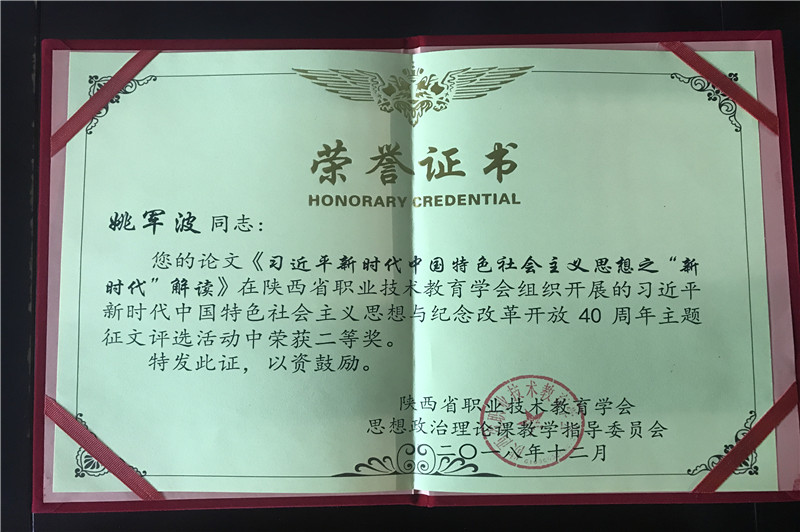 荣誉证书
HONORARY CREDENTIAL
姚军波同志：
您的论文《习近平新时代中国特色社会主义思想之“新
时代”解读》在陕西省职业技术教育学会组织开展的习近平
新时代中国特色社会主义思想与纪念改革开放 40 周年主题
征文评选活动中荣获二等奖。
特发此证，以资鼓励。
陕西省职业技术教育学会
思想政治理论课教学指导委员会
二〇一八年十二月